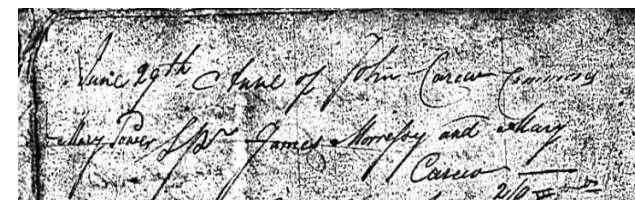 June 29th Anne of John Carew Cummins
Mary Power Sps James Morressy and Mary
Carew